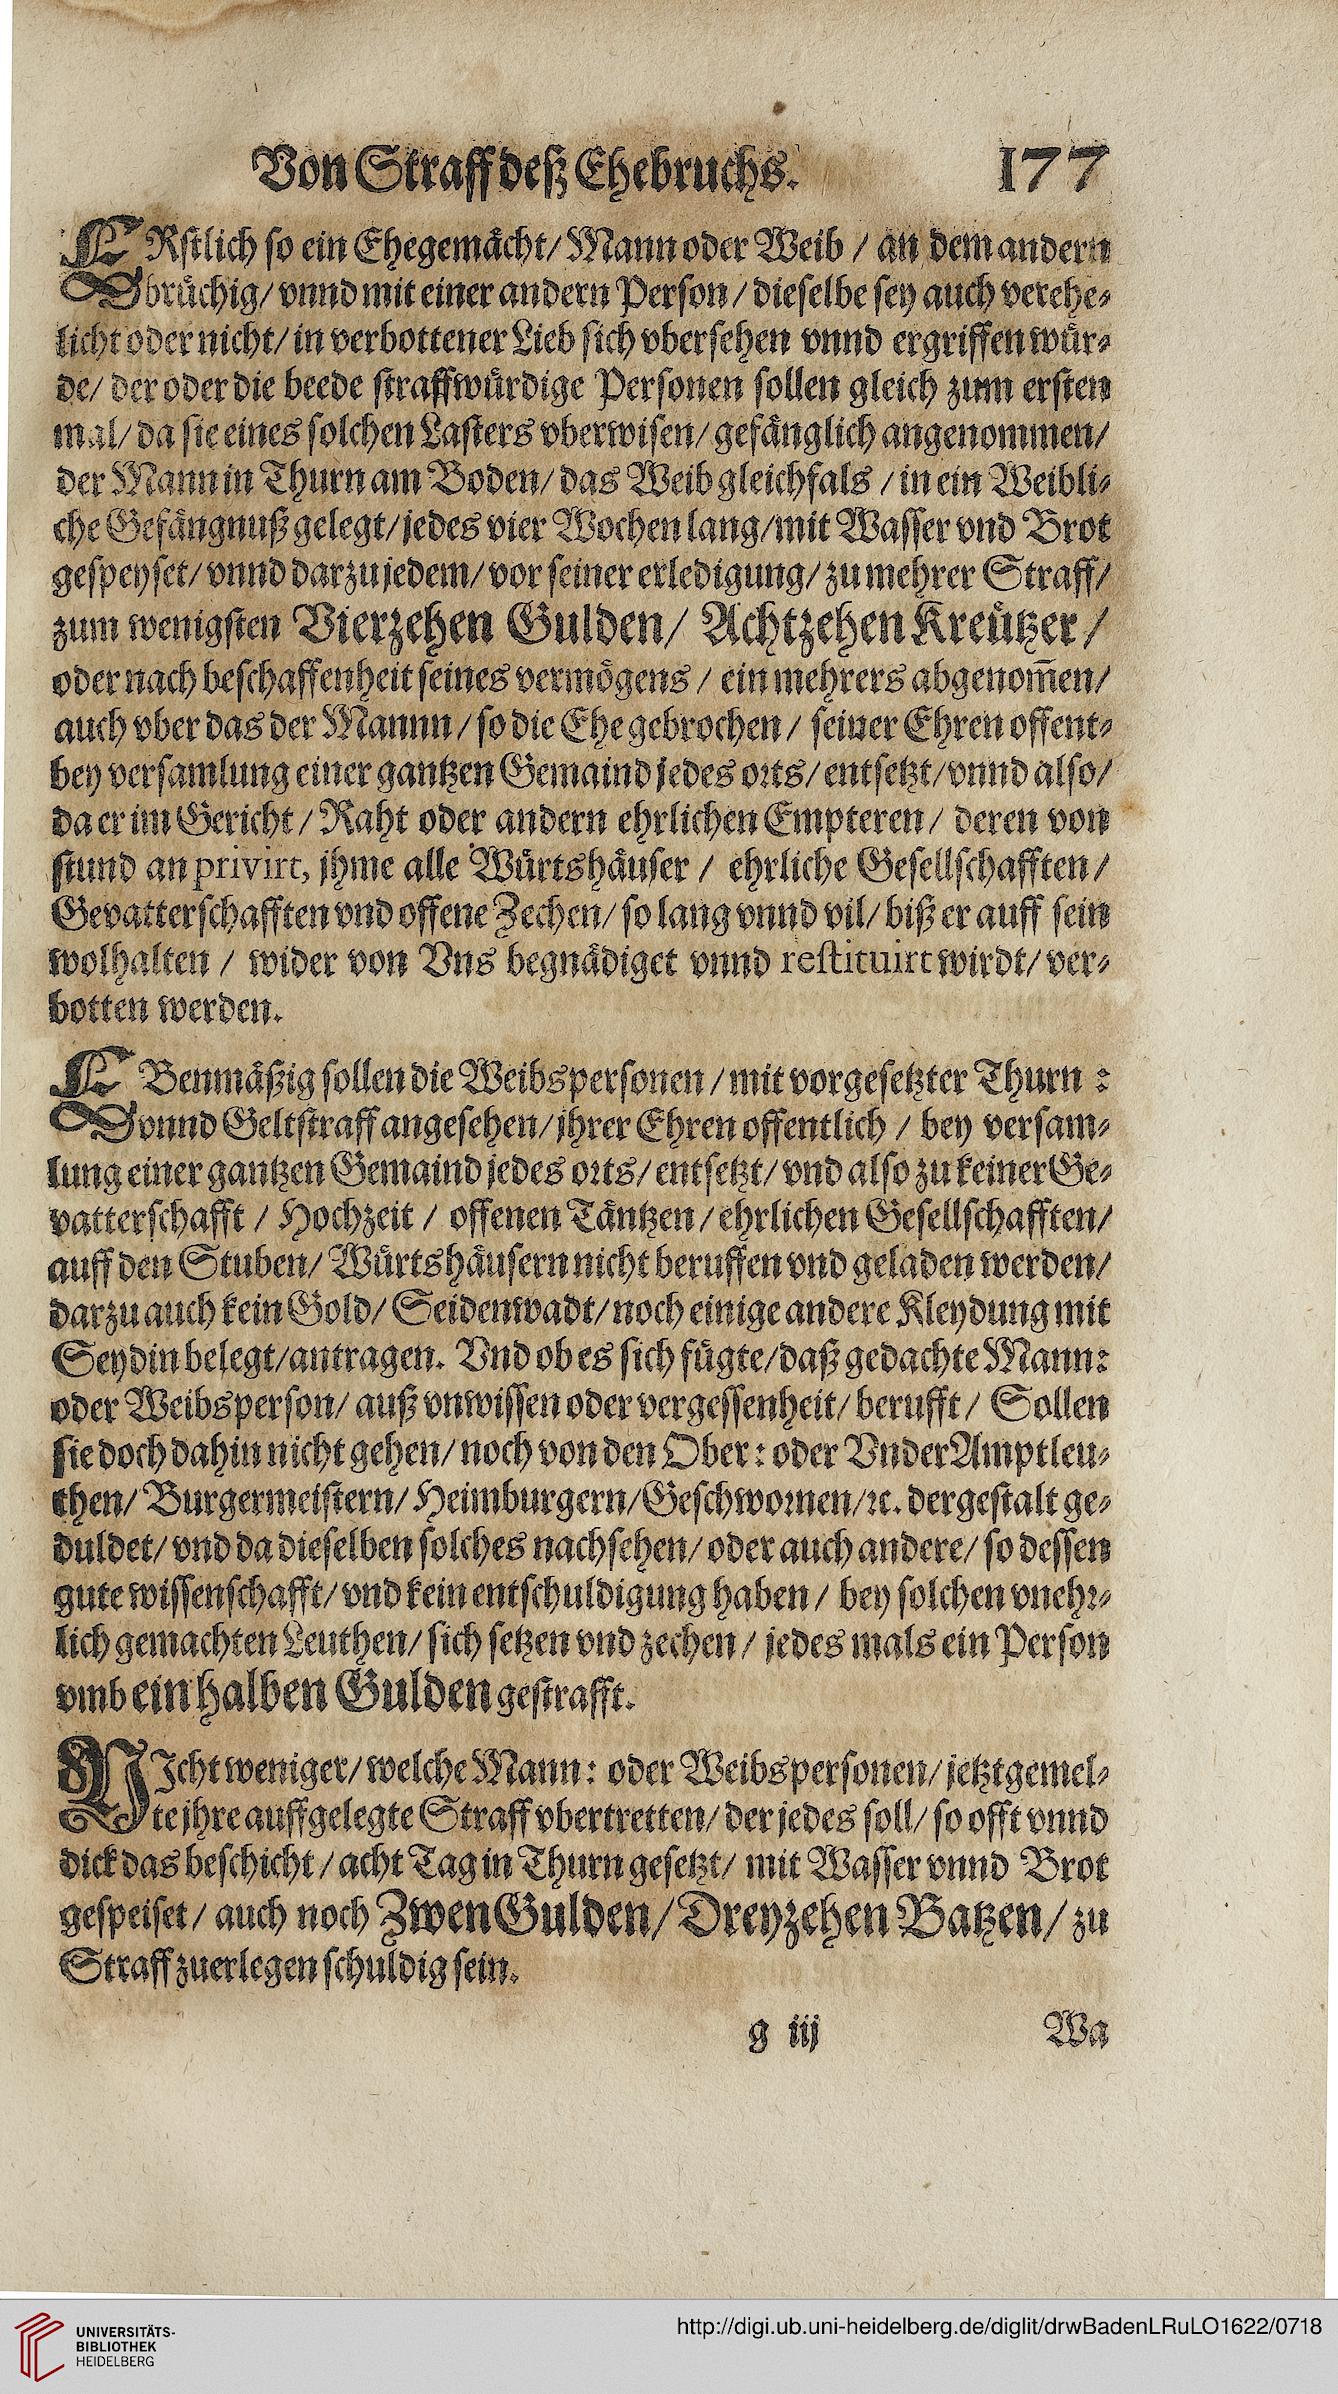 Von Straff deß Ehebruchs. 177
ERstlich so ein Ehegemächt/ Mann oder Weib / an dem andern
brüchig/ vnnd mit einer andern Person / dieselbe sey auch verehe-
licht oder nicht/ in verbottener Lieb sich vbersehen vnnd ergriffen wür-
de/ der oder die beede straffwürdige Personen sollen gleich zum ersten
mal/ da sie eines solchen Lasters vberwisen/ gefänglich angenommen/
der Mann in Thurn am Boden/ das Weib gleichfals / in ein Weibli-
che Gefängnuß gelegt/ jedes vier Wochen lang/ mit Wasser vnd Brot
gespeyset/ vnnd darzu jedem/ vor seiner erledigung/ zu mehrer Straff/
zum wenigsten Vierzehen Gulden/ Achtzehen Kreützer /
oder nach beschaffenheit seines vermögens / ein mehrers abgenom̄en/
auch vber das der Mannn / so die Ehe gebrochen / seiner Ehren offent-
bey versamlung einer gantzen Gemaind jedes orts/ entsetzt/ vnnd also/
da er im Gericht / Raht oder andern ehrlichen Empteren / deren von
stund an privirt, jhme alle Würtshäuser / ehrliche Gesellschafften /
Gevatterschafften vnd offene Zechen/ so lang vnnd vil/ biß er auff sein
wolhalten / wider von Vns begnädiget vnnd restituirt wirdt/ ver-
botten werden.
EBenmäßig sollen die Weibspersonen / mit vorgesetzter Thurn :
vnnd Geltstraff angesehen/ jhrer Ehren offentlich / bey versam-
lung einer gantzen Gemaind jedes orts/ entsetzt/ vnd also zu keiner Ge-
vatterschafft / Hochzeit / offenen Täntzen / ehrlichen Gesellschafften/
auff den Stuben/ Würtshäusern nicht beruffen vnd geladen werden/
darzu auch kein Gold/ Seidenwadt/ noch einige andere Kleydung mit
Seydin belegt/ antragen. Vnd ob es sich fügte/ daß gedachte Mann:
oder Weibsperson/ auß vnwissen oder vergessenheit/ berufft / Sollen
sie doch dahin nicht gehen/ noch von den Ober: oder Vnder Amptleu-
then/ Burgermeistern/ Heimburgern/ Geschwornen/ ꝛc. dergestalt ge-
duldet/ vnd da dieselben solches nachsehen/ oder auch andere/ so dessen
gute wissenschafft/ vnd kein entschuldigung haben / bey solchen vnehr-
lich gemachten Leuthen/ sich setzen vnd zechen / jedes mals ein Person
vmb ein halben Gulden gestrafft.
NIcht weniger/ welche Mann: oder Weibspersonen/ jetztgemel-
te jhre auffgelegte Straff vbertretten/ der jedes soll/ so offt vnnd
dick das beschicht / acht Tag in Thurn gesetzt/ mit Wasser vnnd Brot
gespeiset / auch noch Zwen Gulden/ Dreyzehen Batzen/ zu
Straff zuerlegen schuldig sein.
g iij Wa
UNIVERSITÄTS-
BIBLIOTHEK
HEIDELBERG
http://digi.ub.uni-heidelberg.de/diglit/drwBadenLRuLO1622/0718